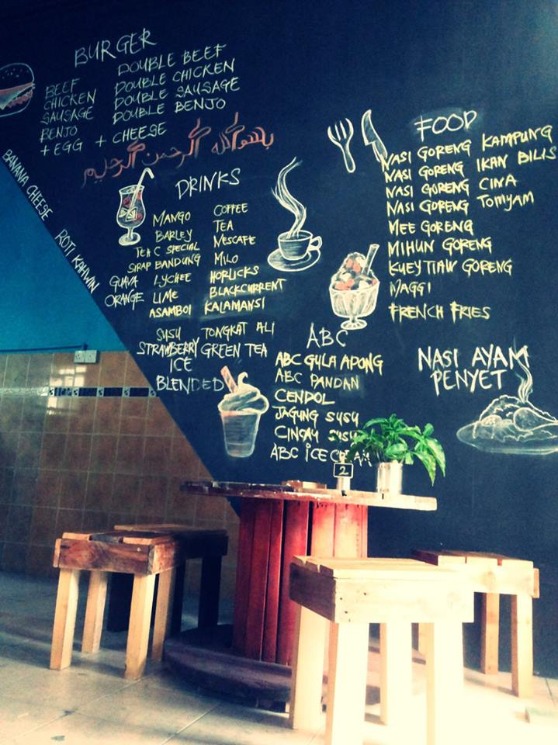 BURGER
BEEF
CHICKEN
SAUSAGE
BENJO
+ EGG + CHEESE
DOUBLE BEEF
DOUBLE CHICKEN
DOUBLE SAUSAGE
DOUBLE BENJO
بسم الله الرحمن الرحيم
BANANA CHEESE
ROTI KAHWIN
DRINKS
MANGO
BARLEY
TEH C SPECIAL
SIRAP BANDUNG
GUAVA LYCHEE
ORANGE LIME
ASAMBOI
COFFEE
TEA
NESCAFE
MILO
HORLICKS
BLACKCURRENT
KALAMANSI
SUSU TONGKAT ALI
STRAWBERRY GREEN TEA
ICE
BLENDED
FOOD
NASI GORENG KAMPUNG
NASI GORENG IKAN BILIS
NASI GORENG CINA
NASI GORENG TOMYAM
MEE GORENG
MIHUN GORENG
KUEYTIAW GORENG
MAGGI
FRENCH FRIES
ABC
ABC GULA APONG
ABC PANDAN
CENDOL
JAGUNG SUSU
CINCAU SUSU
ABC ICE
NASI AYAM
PENYET
2